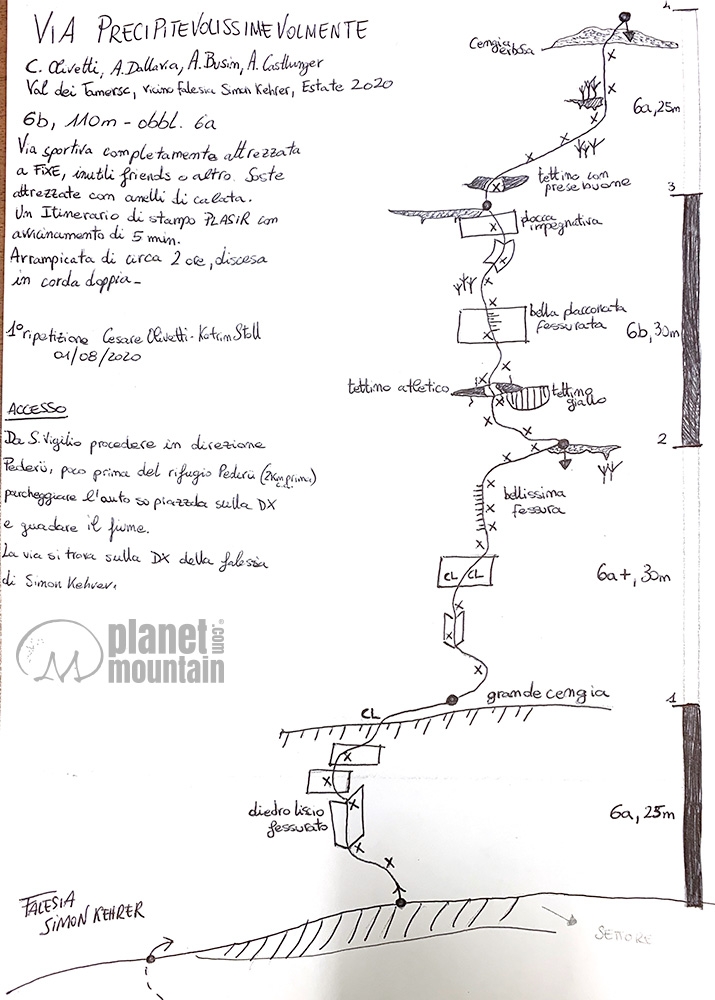 VIA PRECIPITEVOLISSIMEVOLMENTE
C. Olivetti, A. Dallavia, A. Busin, A. Castlunger
Val dei Tamersc, vicino falesia Simon Kehrer, Estate 2020
6b, 110m - obbl. 6a
Via sportiva completamente attrezzata
a FIXE, inutili friends o altro. Soste
attrezzate con anelli di calata.
Un Itinerario di stampo PLASIR con
avvicinamento di 5 min.
Arrampicata di circa 2 ore, discesa
in corda doppia-
1° ripetizione Cesare Olivetti - Katrin Stoll
01/08/2020
ACCESSO
Da S. Vigilio procedere in direzione
Pederü, poco prima del rifugio Pederü (2Km prima)
parcheggiare l'auto su piazzola sulla DX
e guadare il fiume.
La via si trova sulla DX della falesia
di Simon Kehrer.
planet
mountain
.com
4
cengia
erbosa
6a, 25m
tettino con
prese buone
3
placca
impegnativa
bella placconata
fessurata
6b, 30m
tettino atletico
tettino
giallo
2
bellissima
fessura
CL CL
6a+, 30m
grande cengia
1
CL
diedro liscio
fessurato
6a, 25m
FALESIA
SIMON KEHRER
SETTORE